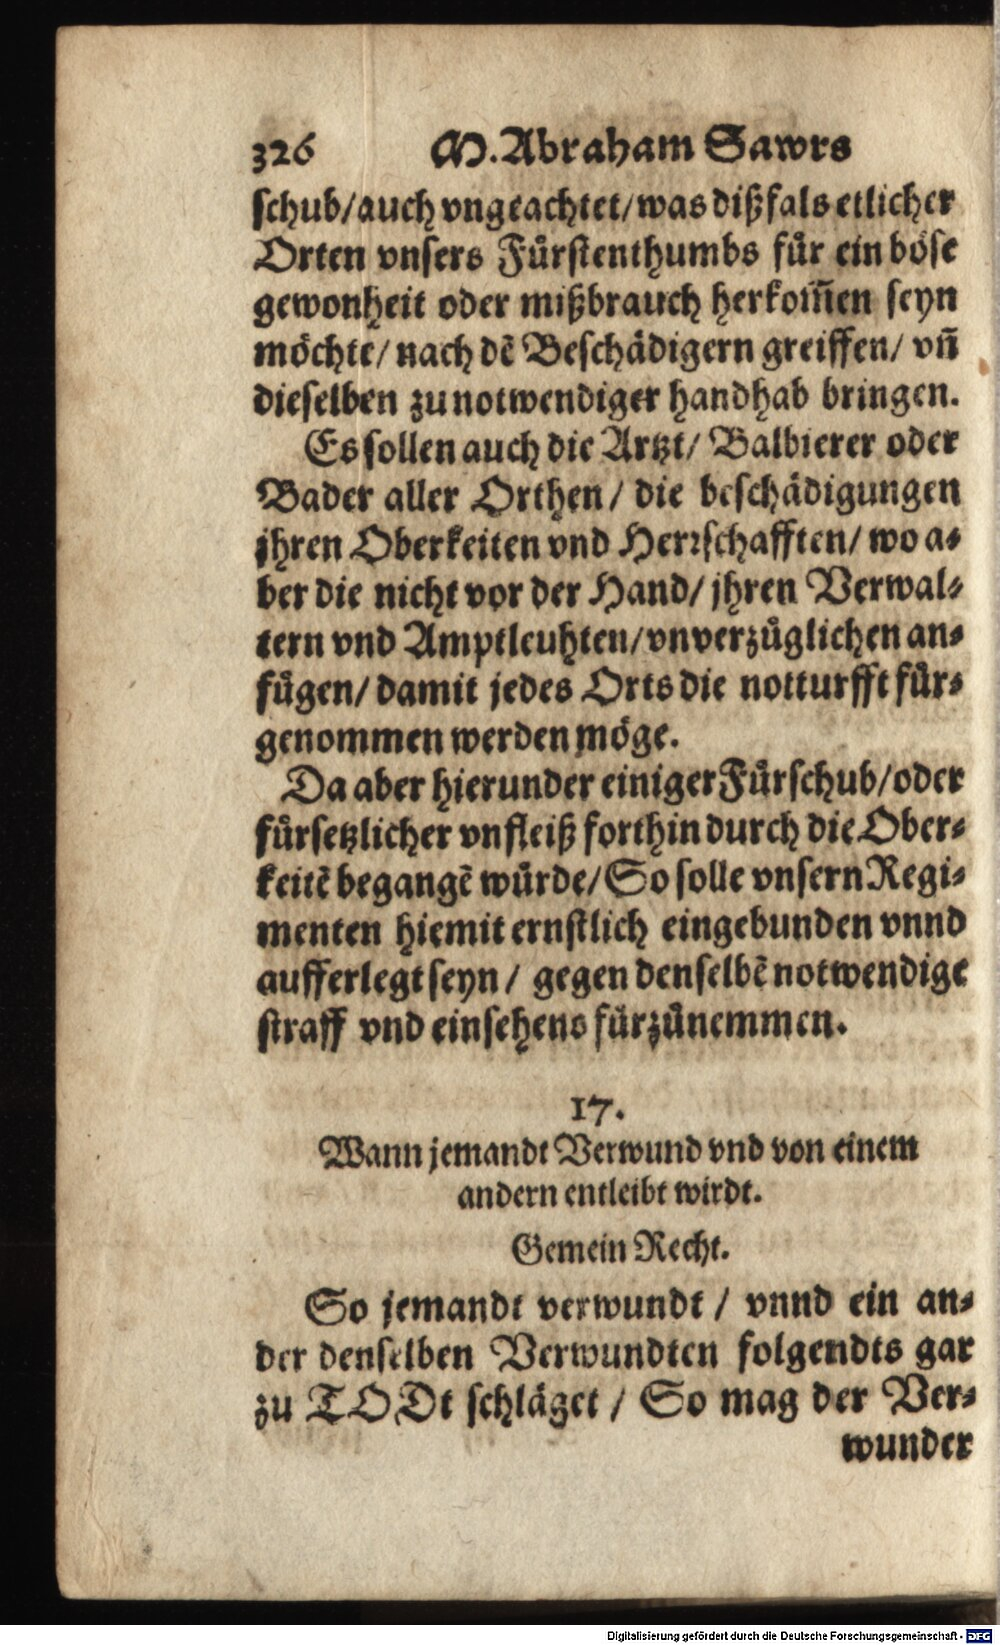 326 M. Abraham Sawrs
schub/auch vngeachtet/was dißfals etlicher
Orten vnsers Fuͤrstenthumbs fuͤr ein boͤse
gewonheit oder mißbrauch herkom̃en seyn
moͤchte/ nach dẽ Beschaͤdigern greiffen/ vñ
dieselben zu notwendiger handhab bringen.
Es sollen auch die Artzt/ Balbierer oder
Bader aller Orthen/ die beschaͤdigungen
jhren Oberkeiten vnd Herꝛschafften/ wo a⸗
ber die nicht vor der Hand/ jhren Verwal⸗
tern vnd Amptleuhten/vnverzuͤglichen an⸗
fuͤgen/ damit jedes Orts die notturfft fuͤr⸗
genommen werden moͤge.
Da aber hierunder einiger Fuͤrschub/oder
fuͤrsetzlicher vnfleiß forthin durch die Ober⸗
keitẽ begangẽ wuͤrde/So solle vnsern Regi⸗
menten hiemit ernstlich eingebunden vnnd
aufferlegt seyn/ gegen denselbẽ notwendige
straff vnd einsehens fuͤrzuͤnemmen.
17.
Wann jemandt Verwund vnd von einem
andern entleibt wirdt.
Gemein Recht.
So jemandt verwundt/ vnnd ein an⸗
der denselben Verwundten folgendts gar
zu TODt schlaͤget/ So mag der Ver⸗
wunder
Digitalisierung gefördert durch die Deutsche Forschungsgemeinschaft - DFG